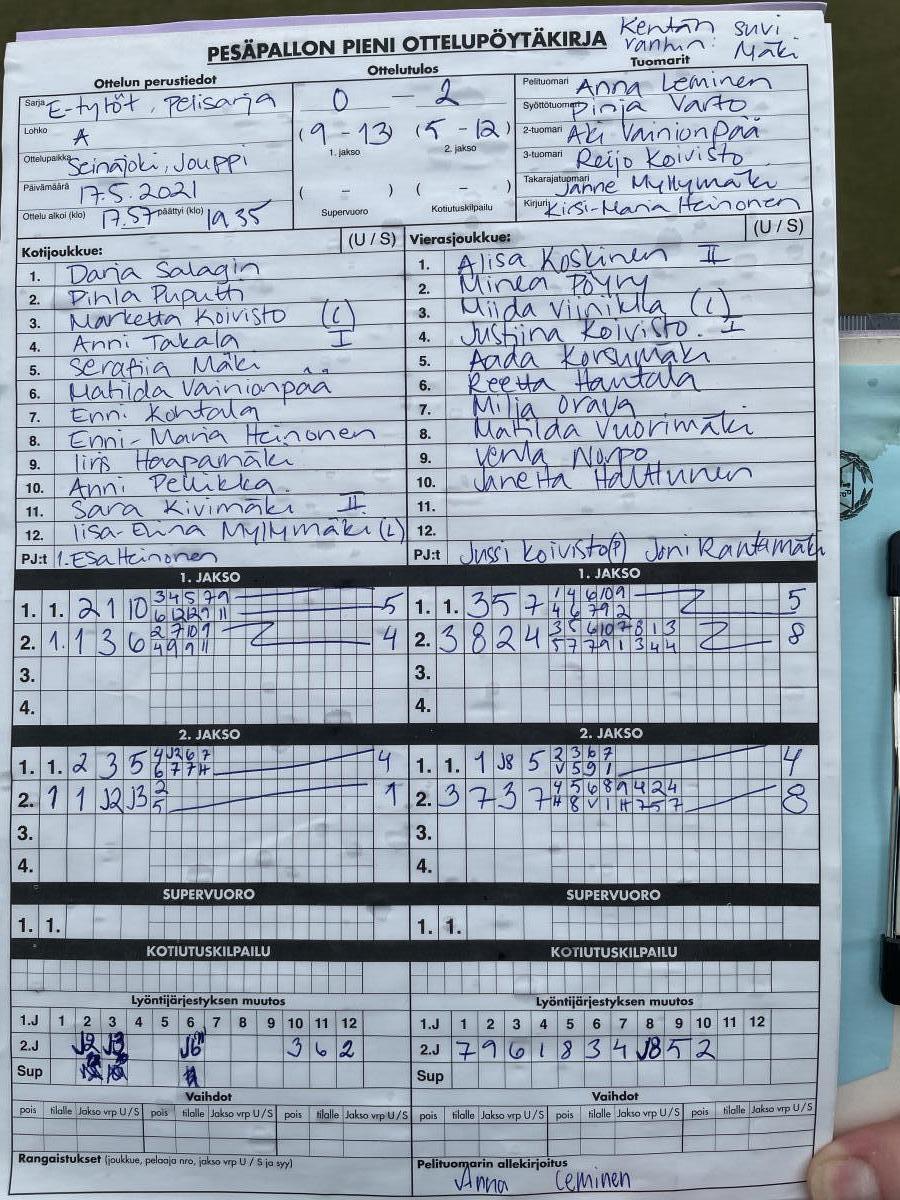 Kentän suvi
PESÄPALLON PIENI OTTELUPÖYTÄKIRJA vanhin: Mäki
Ottelun perustiedot Ottelutulos Tuomarit
Sarja E-tytöt, pelisarja
Lohko A
Ottelupaikka Seinäjoki, Jouppi
Päivämäärä 17.5.2021
Ottelu alkoi (klo) 17.57 päättyi (klo) 19.35
0 - 2
(9 - 13) (5 - 12)
1. jakso 2. jakso
( - ) ( - )
Supervuoro Kotiutuskilpailu
Pelituomari Anna Leminen
Syöttötuomari Pinja Varto
2-tuomari Aki Vainionpää
3-tuomari Reijo Koivisto
Takarajatuomari Janne Myllymäki
Kirjuri Kirsi-Maria Heinonen
Kotijoukkue: (U / S)
1. Darja Salagin
2. Pinla Puputti
3. Marketta Koivisto (L)
4. Anni Takala I
5. Serafiia Mäki
6. Matilda Vainionpää
7. Enni Kohtala
8. Enni-Maria Heinonen
9. Iiris Haapamäki
10. Anni Pelkikka
11. Sara Kivimäki II
12. Iisa-Elina Myllymäki (L)
PJ:t 1. Esa Heinonen
Vierasjoukkue: (U / S)
1. Alisa Koskinen II
2. Minea Pöyry
3. Miida Viinikka (L)
4. Justiina Koivisto. I
5. Aada Korsumäki
6. Reetta Hantala
7. Milja Orava
8. Matilda Vuorimäki
9. Venla Norpo
10. Janetta Halttunen
11.
12.
PJ:t Jussi Koivisto(P) Joni Rantamäki
1. JAKSO 1. JAKSO
1. 1. 2 1 10 3 4 5 7 9 5
6 12 12 9 11
2. 1. 1 3 6 2 7 10 9 4
4 9 9 11
3.
4.
1. 1. 3 5 7 1 4 6 10 9 5
4 6 7 9 2
2. 3 8 2 4 3 5 6 10 7 8 1 3 8
5 7 7 9 1 3 4 4
3.
4.
2. JAKSO 2. JAKSO
1. 1. 2 3 5 4 J2 6 7 4
6 7 7 H
2. 1 1 J2 J3 2 1
5
3.
4.
1. 1. 1 J8 5 2 3 6 7 4
V 5 9 1
2. 3 7 3 7 4 5 6 8 9 4 2 4 8
H 8 V 1 H 7 5 7
3.
4.
SUPERVUORO SUPERVUORO
1. 1. 1. 1.
KOTIUTUSKILPAILU KOTIUTUSKILPAILU
Lyöntijärjestyksen muutos Lyöntijärjestyksen muutos
1.J 1 2 3 4 5 6 7 8 9 10 11 12 1.J 1 2 3 4 5 6 7 8 9 10 11 12
2.J J2 J3 J6 3 6 2 2.J 7 9 6 1 8 3 4 J8 5 2
Sup Sup
Vaihdot Vaihdot
pois tilalle Jakso vrp U/S pois tilalle Jakso vrp U/S pois tilalle Jakso vrp U/S pois tilalle Jakso vrp U/S pois tilalle Jakso vrp U/S pois tilalle Jakso vrp U/S
Rangaistukset (joukkue, pelaaja nro, jakso vrp U / S ja syy) Pelituomarin allekirjoitus
Anna Leminen